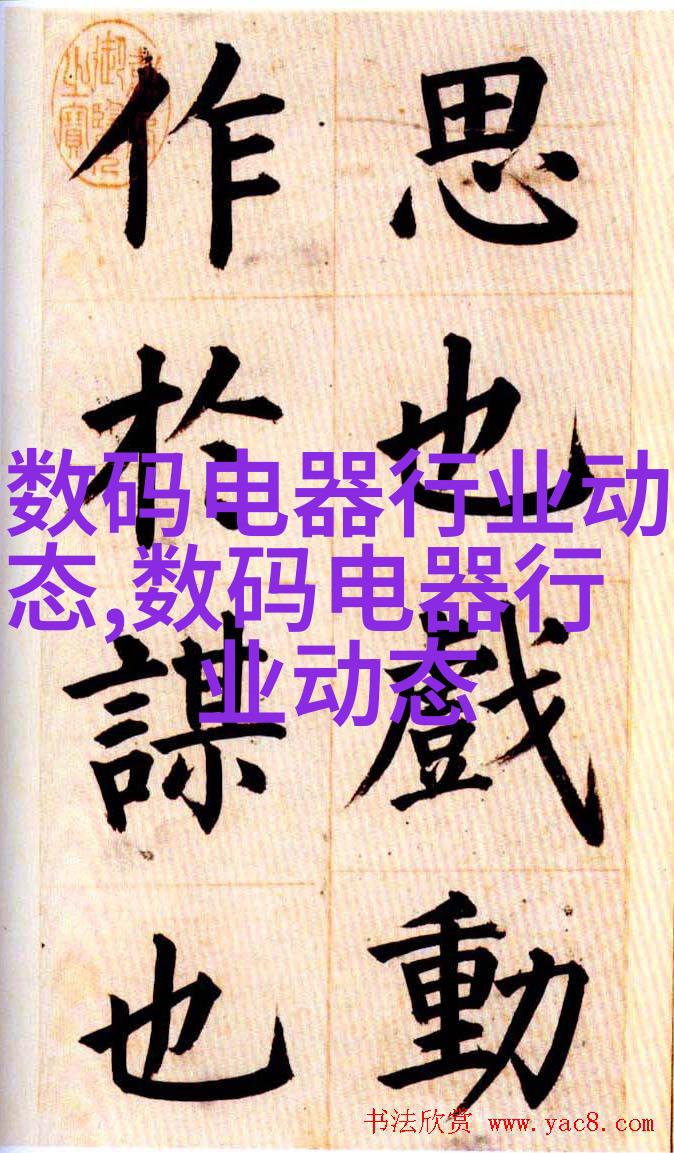 思也戲動
作於謀也
数码电器行业动
态,数码电器行
业动态
书法欣赏 www.yac8.com